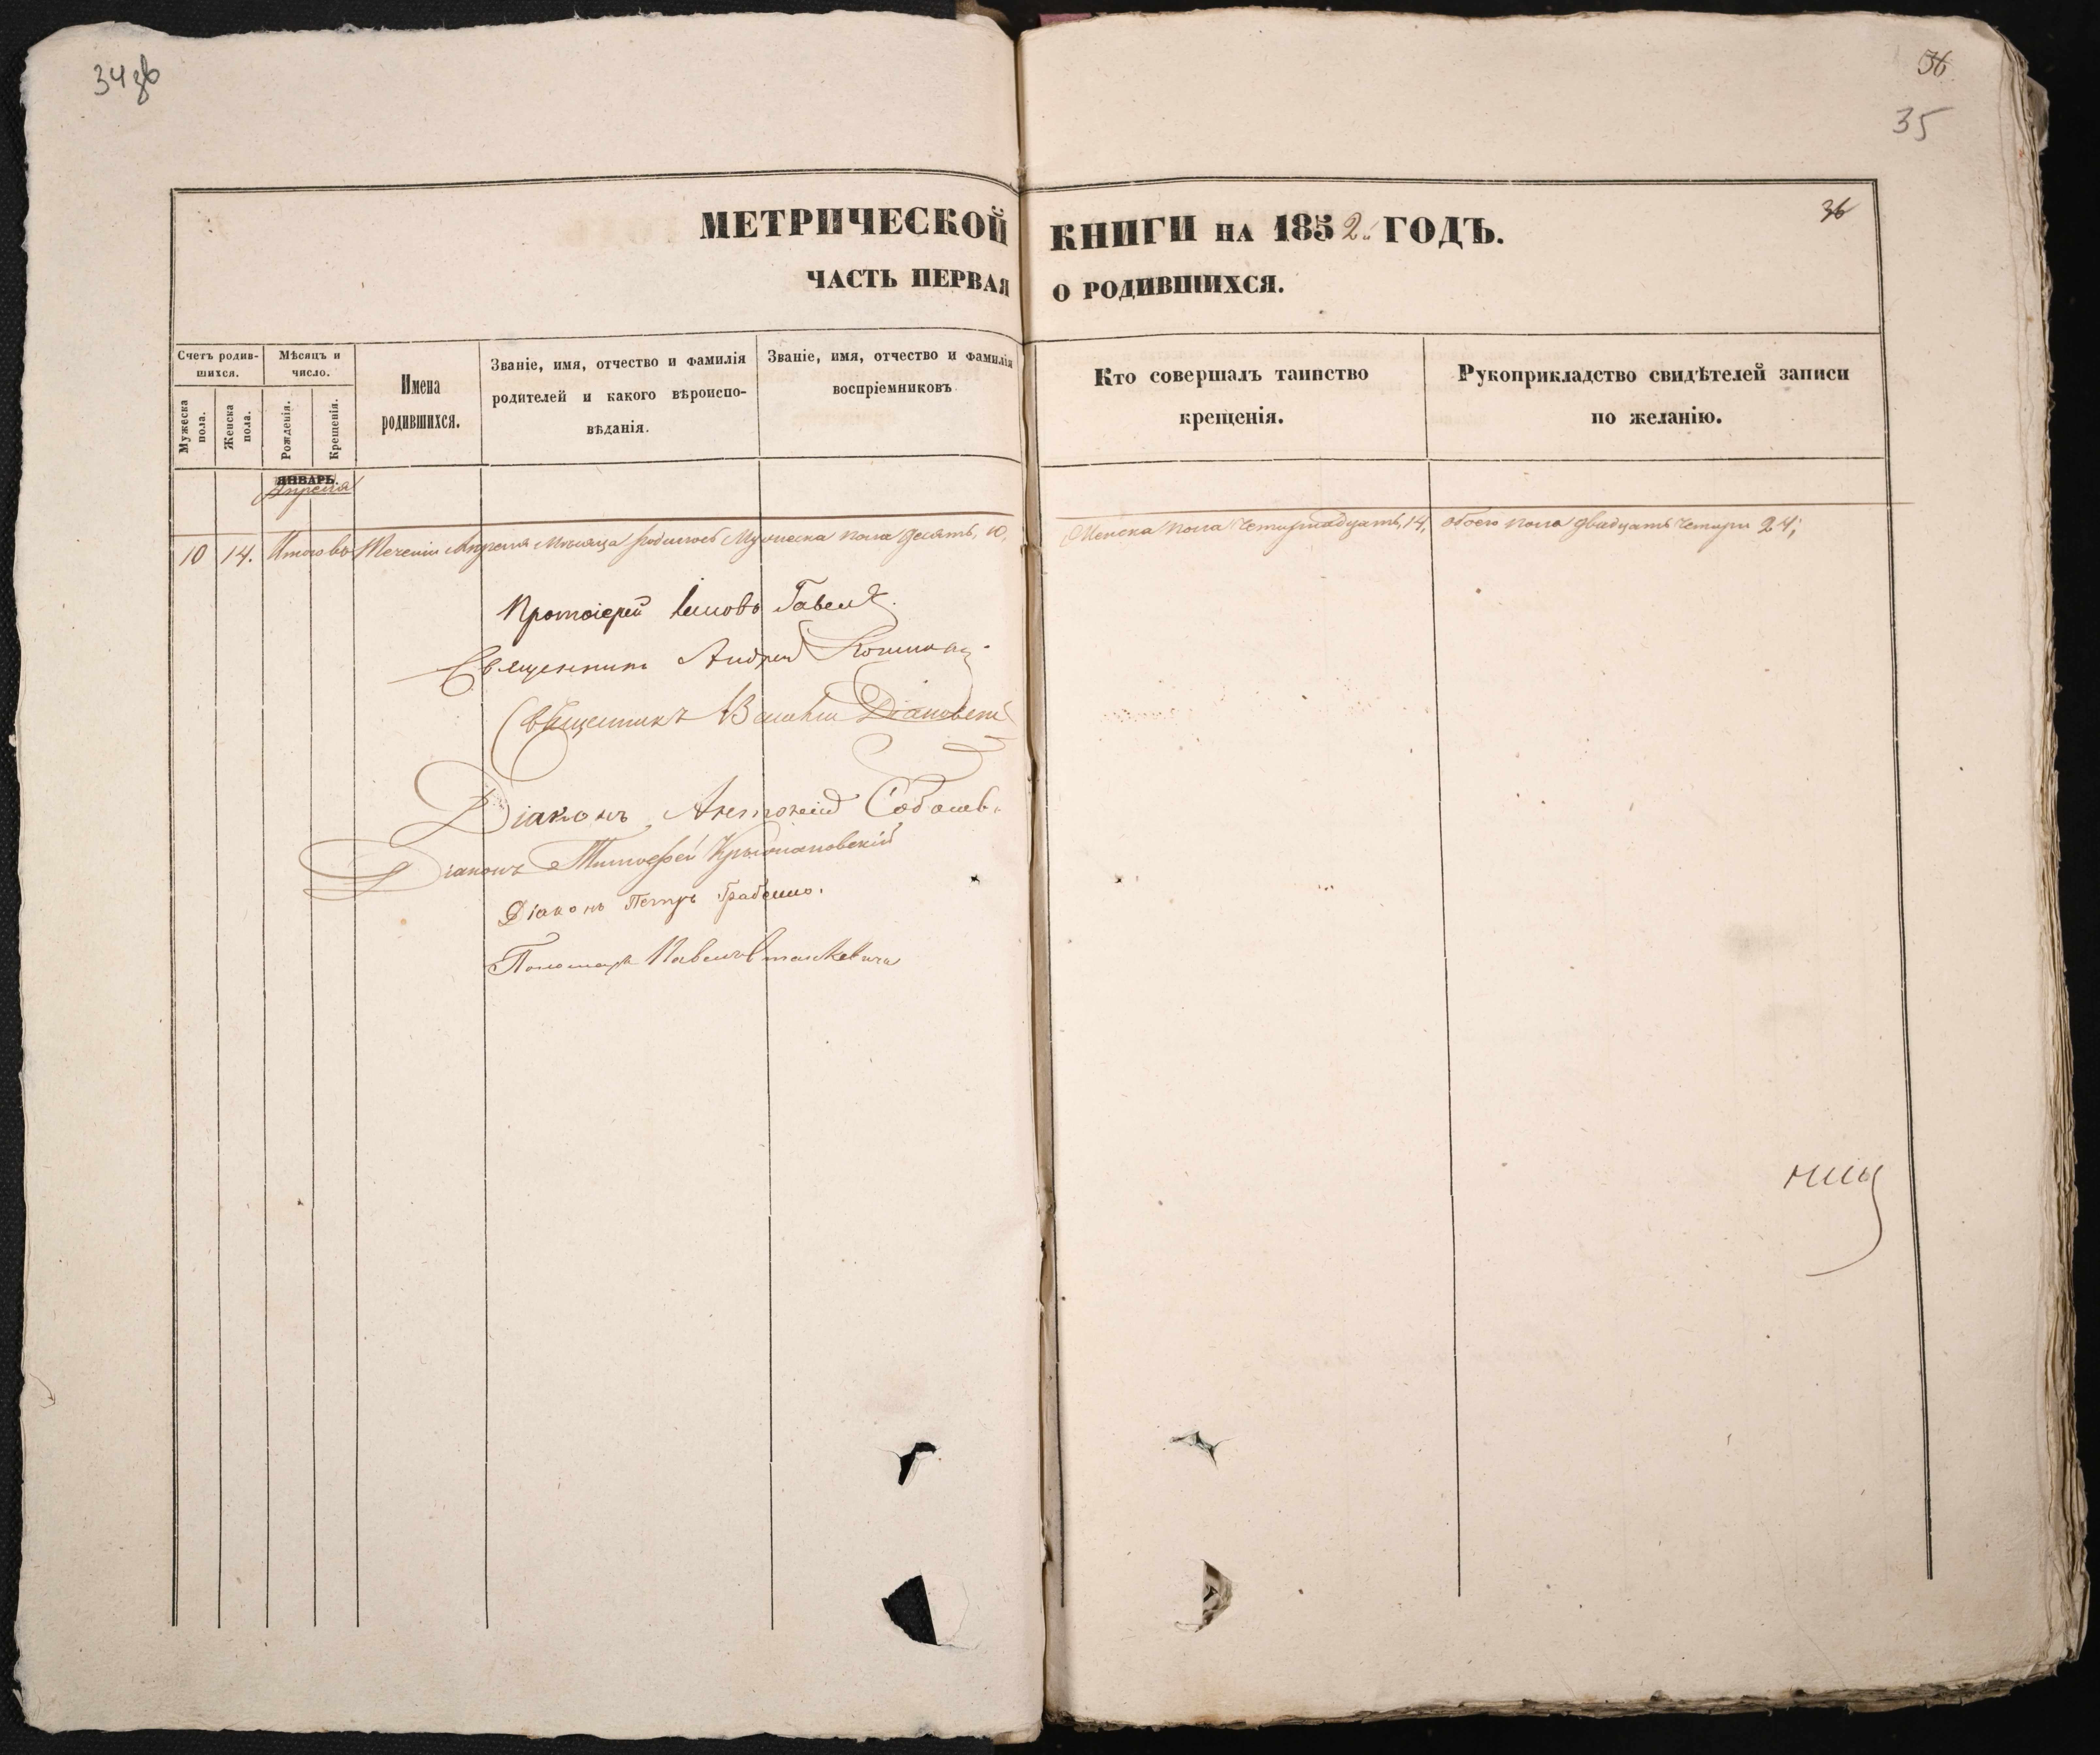 34 зв
36
35
МЕТРИЧЕСКОЙ КНИГИ НА 1852 ГОДЪ.
36
ЧАСТЬ ПЕРВАЯ О РОДИВШИХСЯ.
Счетъ родив-
шихся.
Мужеска
пола.
Женска
пола.
Мѣсяцъ и
число.
Рожденія.
Крещенія.
Имена
родившихся.
Званіе, имя, отчество и фамилія
родителей и какого вѣроиспо-
вѣданія.
Званіе, имя, отчество и фамилія
воспріемниковъ
Кто совершалъ таинство
крещенія.
Рукоприкладство свидѣтелей записи
по желанію.
ЯНВАРЬ.
Апреля
10 14. Итого въ Теченіи Апреля Мѣсяца родилось Мужеска пола десять, 10, Женска пола Четырнадцать, 14, обоего пола двадцать Четыри 24;
Протоіерей
Священникъ Андрей
Священникъ
Діаконъ Антоній
Діаконъ Тимофей Крыжановскій
Діаконъ Петръ
Пономарь Павелъ